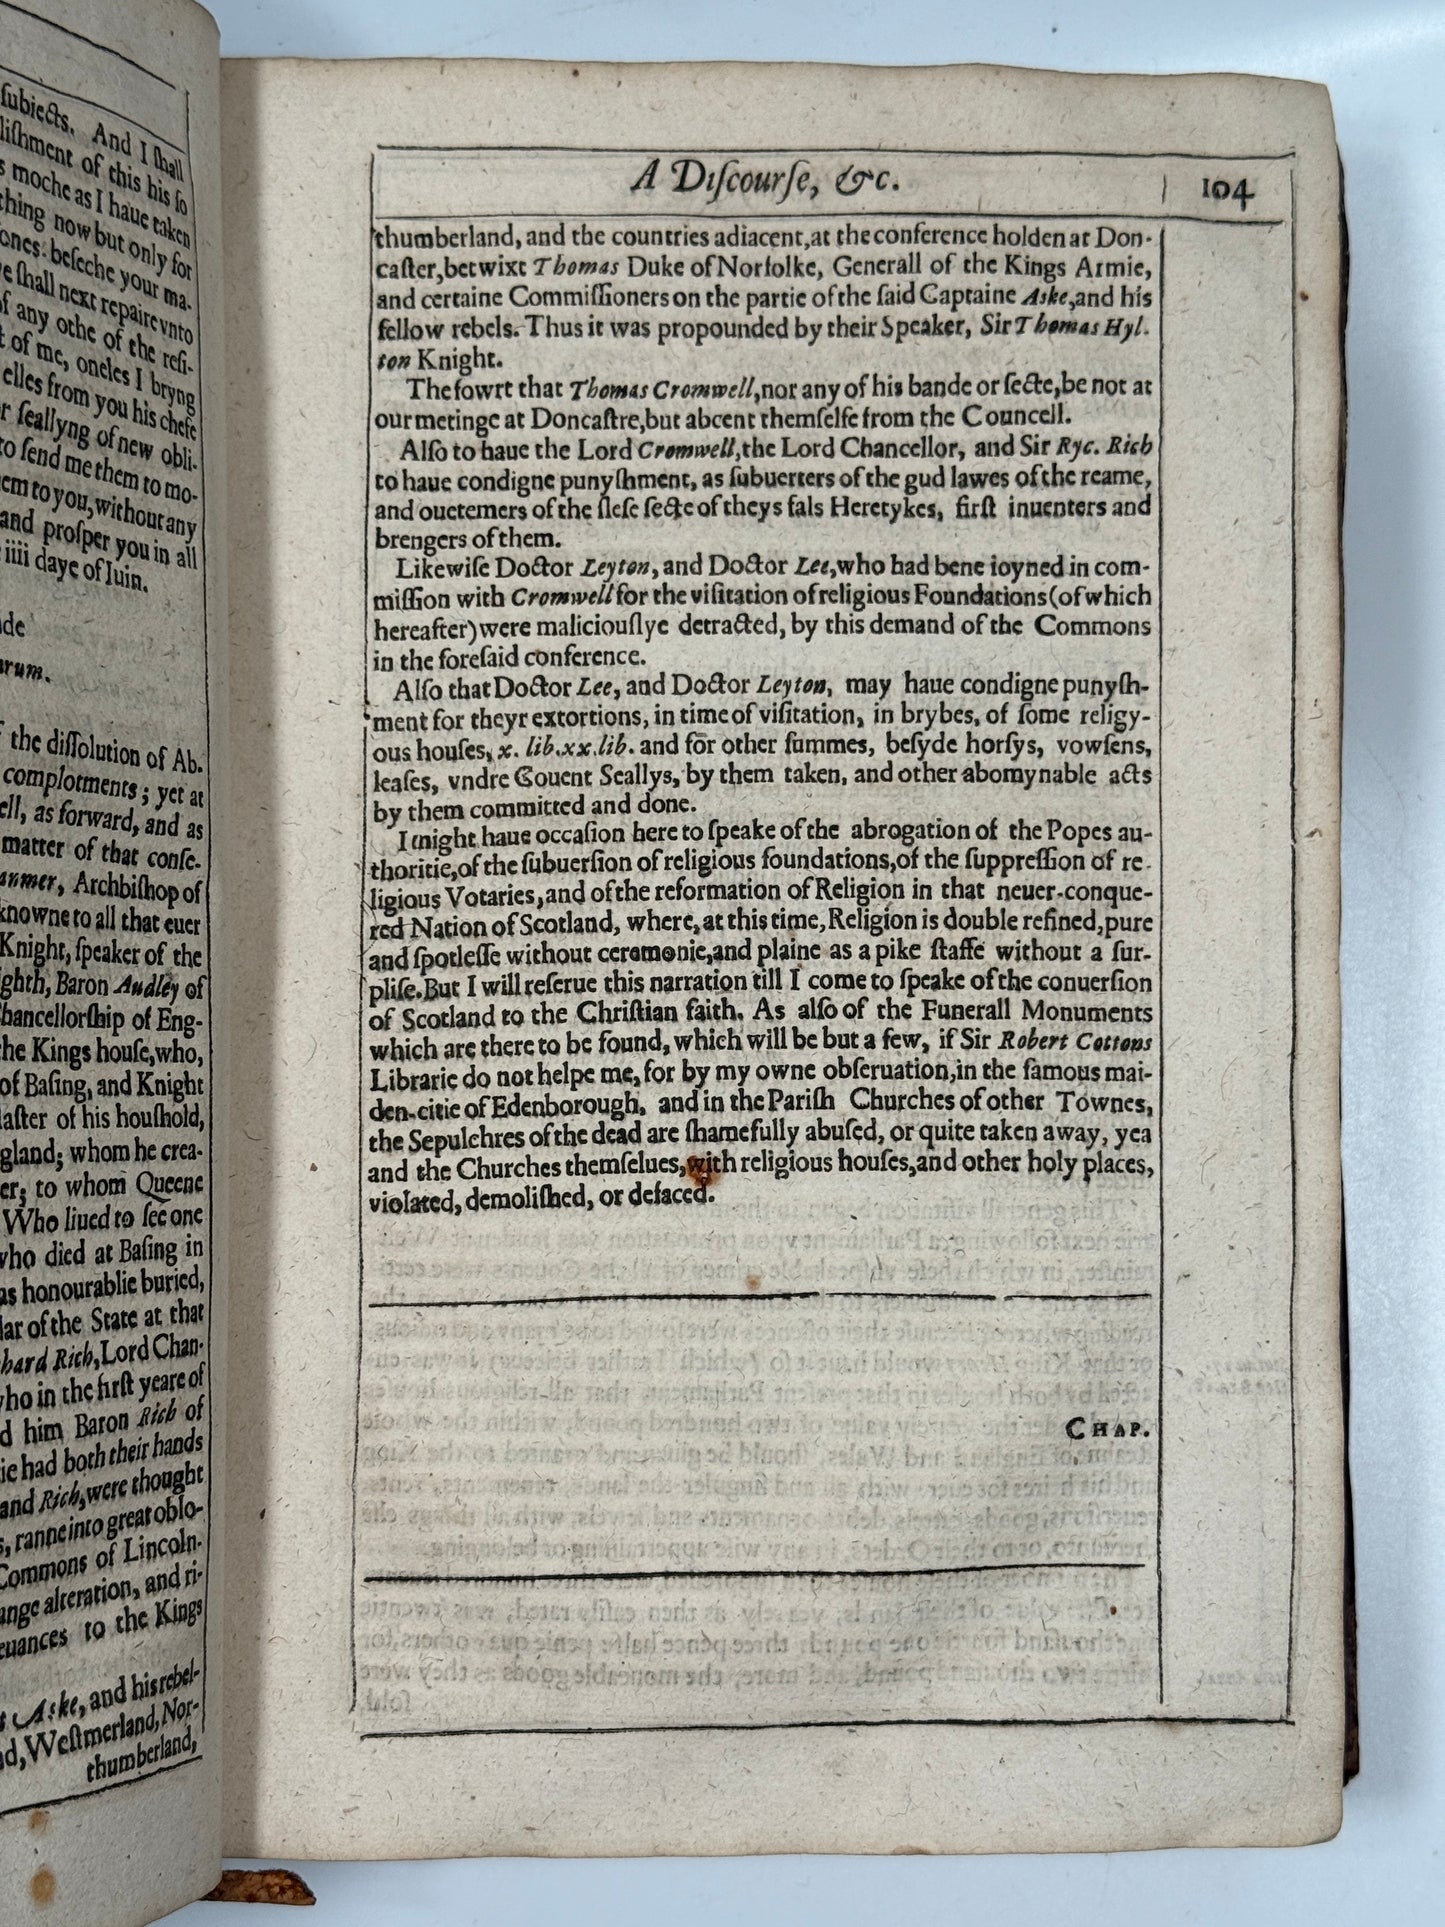 subiects. And I shall
lishment of this his so
s moche as I haue taken
thing now but only for
ones: beseche your ma-
e shall next repaire vnto
of any othe of the resi-
t of me, oneles I bryng
elles from you his chefe
r seallyng of new obli-
to send me them to mo-
em to you, without any
and prosper you in all
iiii daye of Iuin.
de
arum.
the dissolution of Ab.
complotments; yet at
ell, as forward, and as
matter of that conse-
anmer, Archbishop of
knowne to all that euer
Knight, speaker of the
ghth, Baron Audley of
hancellorship of Eng-
he Kings house, who,
of Basing, and Knight
laster of his houshold,
gland; whom he crea-
er; to whom Queene
Who liued to see one
who died at Basing in
as honourablie buried,
lar of the State at that
hard Rich, Lord Chan-
who in the first yeare of
d him Baron Rich of
ie had both their hands
and Rich, were thought
s, ranne into great oblo-
Commons of Lincoln-
ange alteration, and ri-
euances to the Kings
Aske, and his rebel-
d, Westmerland, Nor-
thumberland,
A Discourse, &c. 104
thumberland, and the countries adiacent, at the conference holden at Don-
caster, betwixt Thomas Duke of Norfolke, Generall of the Kings Armie,
and certaine Commissioners on the partie of the said Captaine Aske, and his
fellow rebels. Thus it was propounded by their Speaker, Sir Thomas Hyl.
ton Knight.
The fowrt that Thomas Cromwell, nor any of his bande or secte, be not at
our metinge at Doncastre, but abcent themselfe from the Councell.
Also to haue the Lord Cromwell, the Lord Chancellor, and Sir Ryc. Rich
to haue condigne punyshment, as subuerters of the gud lawes of the reame,
and ouetemers of the slese secte of theys fals Heretykes, first inuenters and
brengers of them.
Likewise Doctor Leyton, and Doctor Lee, who had bene ioyned in com-
mission with Cromwell for the visitation of religious Foundations (of which
hereafter) were maliciouslye detracted, by this demand of the Commons
in the foresaid conference.
Also that Doctor Lee, and Doctor Leyton, may haue condigne punysh-
ment for theyr extortions, in time of visitation, in brybes, of some religy-
ous houses, x. lib. xx. lib. and for other summes, besyde horsys, vowsens,
leases, vndre Couent Seallys, by them taken, and other abomynable acts
by them committed and done.
I might haue occasion here to speake of the abrogation of the Popes au-
thoritie, of the subuersion of religious foundations, of the suppression of re-
ligious Votaries, and of the reformation of Religion in that neuer-conque-
red Nation of Scotland, where, at this time, Religion is double refined, pure
and spotlesse without ceremonie, and plaine as a pike staffe without a sur-
plise. But I will reserue this narration till I come to speake of the conuersion
of Scotland to the Christian faith. As also of the Funerall Monuments
which are there to be found, which will be but a few, if Sir Robert Cottons
Librarie do not helpe me, for by my owne obseruation, in the famous mai-
den-citie of Edenborough, and in the Parish Churches of other Townes,
the Sepulchres of the dead are shamefully abused, or quite taken away, yea
and the Churches themselues, with religious houses, and other holy places,
violated, demolished, or defaced.
CHAP.